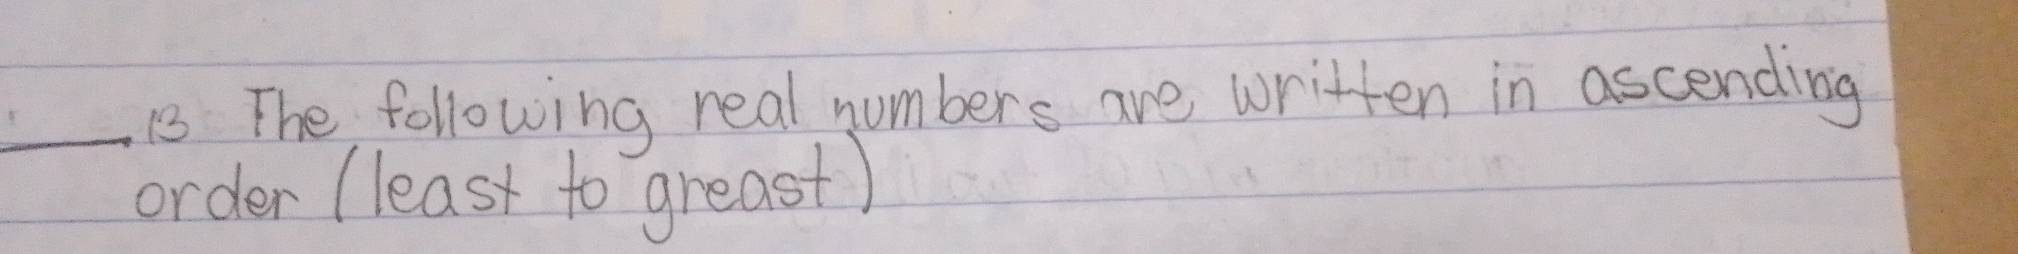 ____. 13 The following real numbers are written in ascending
order (least to greast)